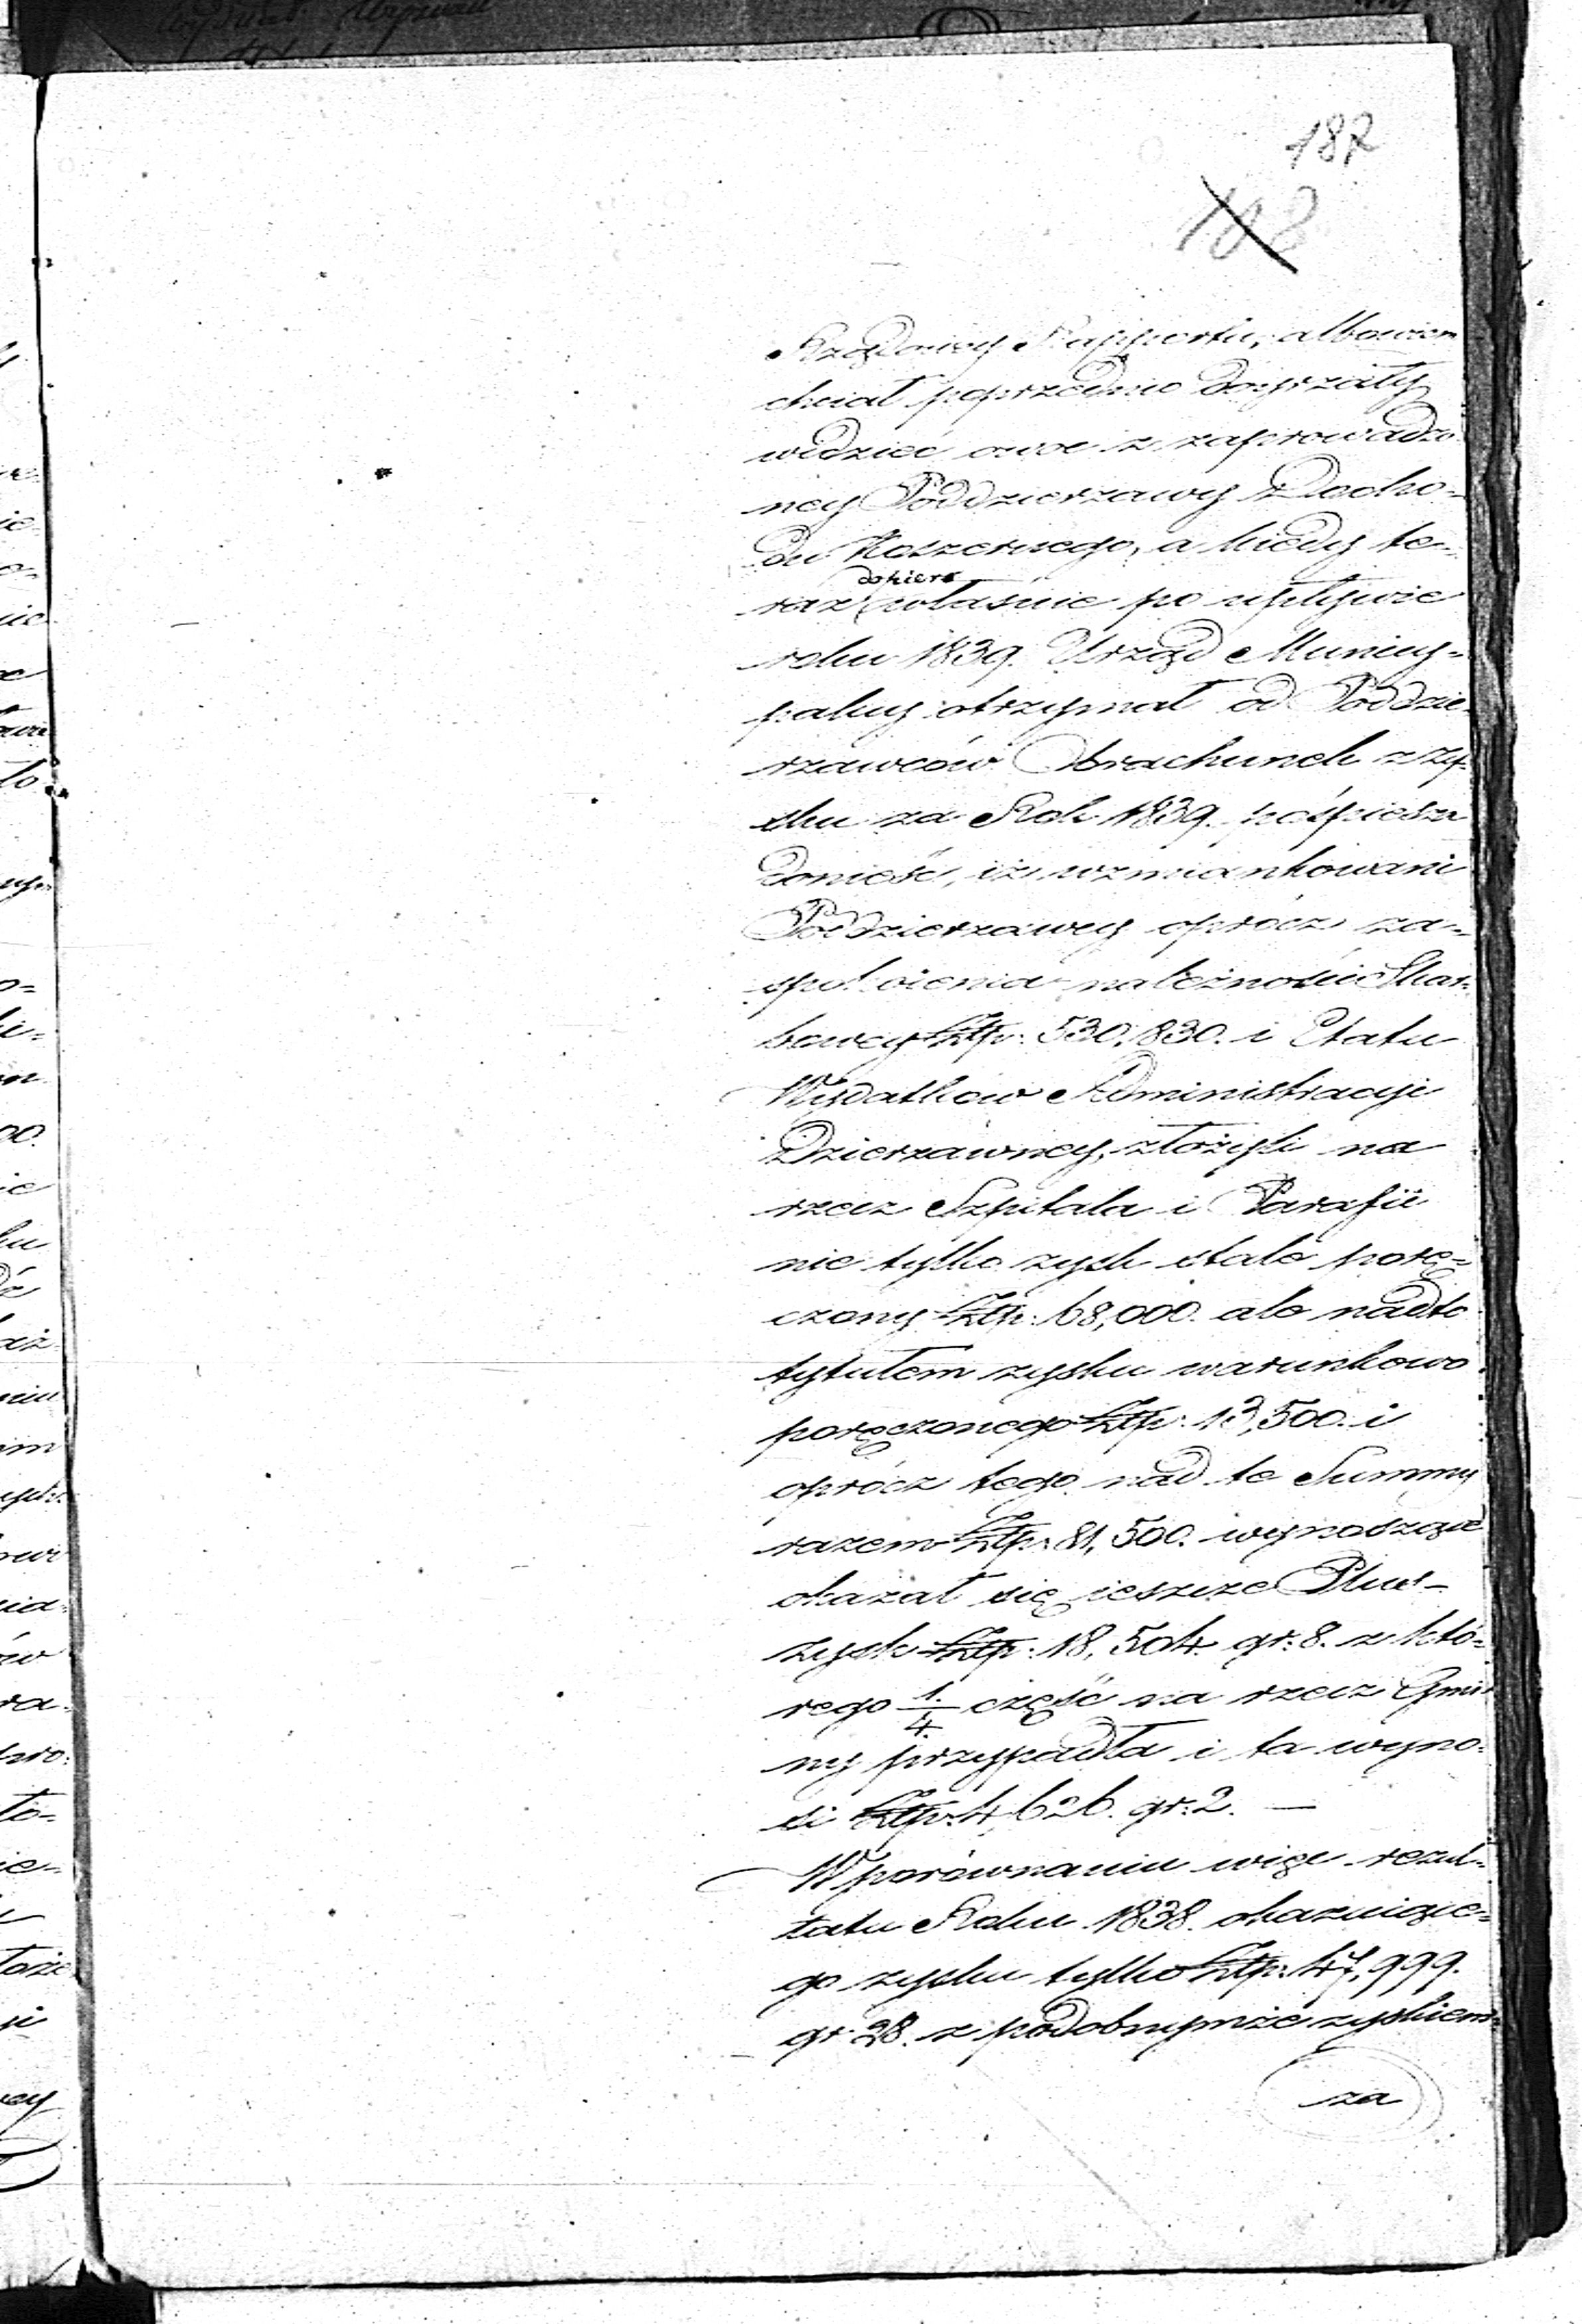 187
188
Rządowey Rapportu, albowiem
chciał poprzednio doyrzały
widzieć owoc z zaprowadzo
ney Poddzierzawy Docho-
du Koszernego, a kiedy te-
raz dopiero właśnie po upływie
roku 1839. Urząd Municy-
palny otrzymał od Poddzie-
rzawców Obrachunek z zy-
sku za Rok 1839. pośpiesza
donieść, iż wzmiankowani
Poddzierzawcy oprócz za-
spokoienia należności Skar-
bowey Złp: 530,830. i Etatu
Wydatków Administracyi
Dzierzawney, złożyli na
rzecz Szpitala i Parafii
nie tylko zysk stale porę-
czony Złp: 68,000. ale nadto
tytułem zysku warunkowo
poręczonego Złp: 13,500. i
oprócz tego nad te Summy
razem Złp: 81,500. wynoszące
okazał się ieszcze Plus-
zysk Złp: 18,504. gr: 8. z któ-
rego 1/4. część na rzecz Gmi-
ny przypadła i ta wyno-
si Złp: 4,626. gr: 2. —
W porównaniu więc rezul-
tatu Roku 1838. okazuiące-
go zysku tylko Złp: 47,999.
gr: 28. z podobnymże zyskiem
za